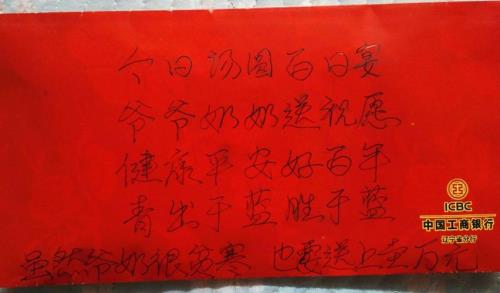 今日汤圆百日宴
爷爷奶奶送祝愿
健康平安好百年
青出于蓝胜于蓝
虽然爷奶很贫寒 也要送上壹万元
ICBC
中国工商银行
辽宁省分行